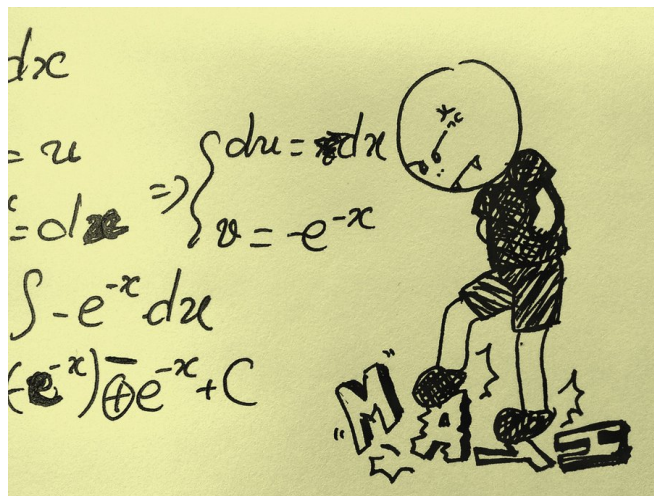 dx
= u
= dx
⇒ { du = dx
v = -e^{-x}
∫ -e^{-x} dx
(-e^{-x}) ∓ e^{-x} + C
MATH